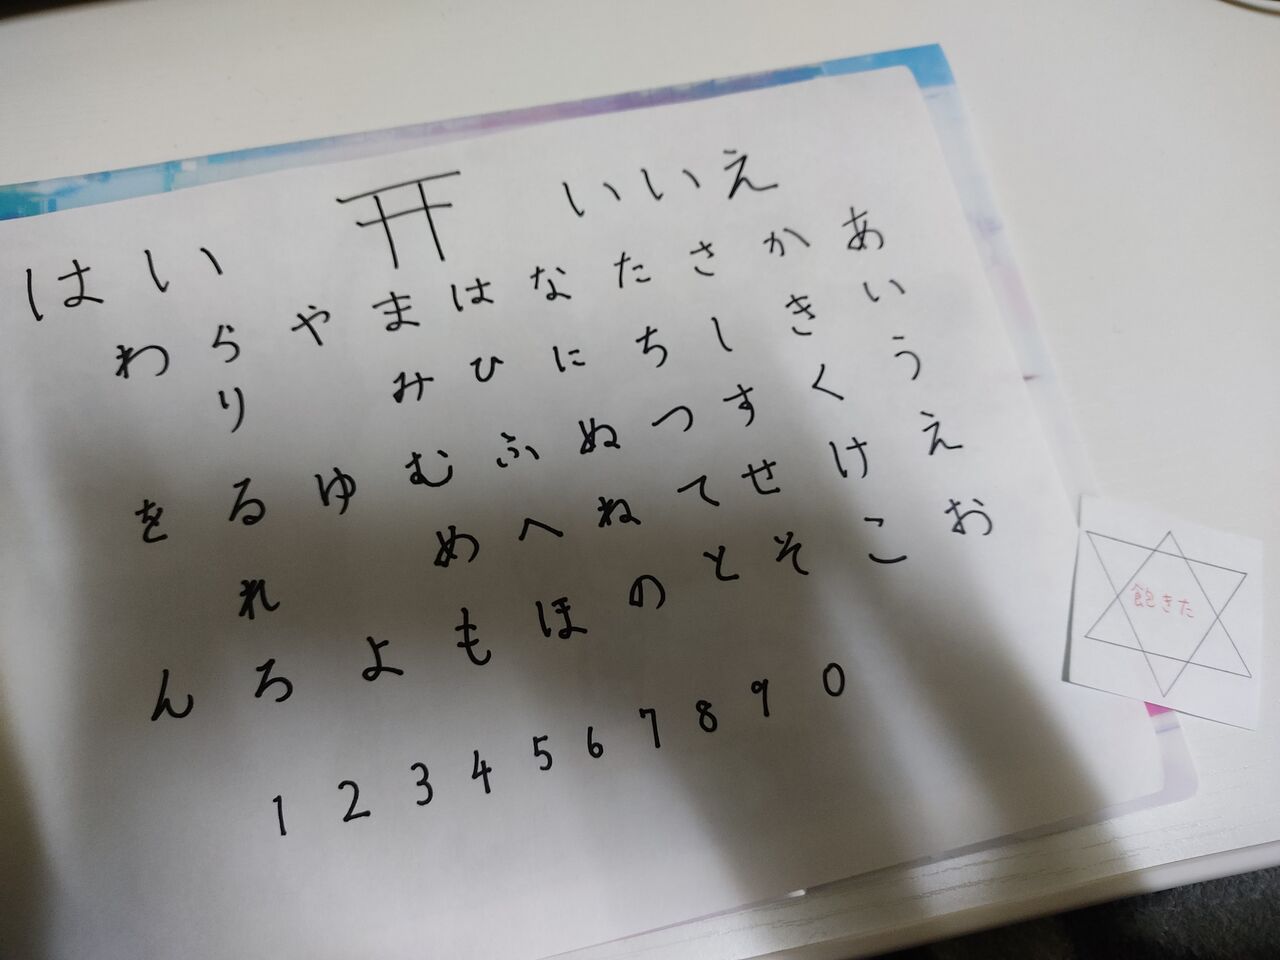 はい いいえ
わ ら や ま は な た さ か あ
り み ひ に ち し き い
を る ゆ む ふ ぬ つ す く う
れ め へ ね て せ け え
ん ろ よ も ほ の と そ こ お
1 2 3 4 5 6 7 8 9 0
飽きた